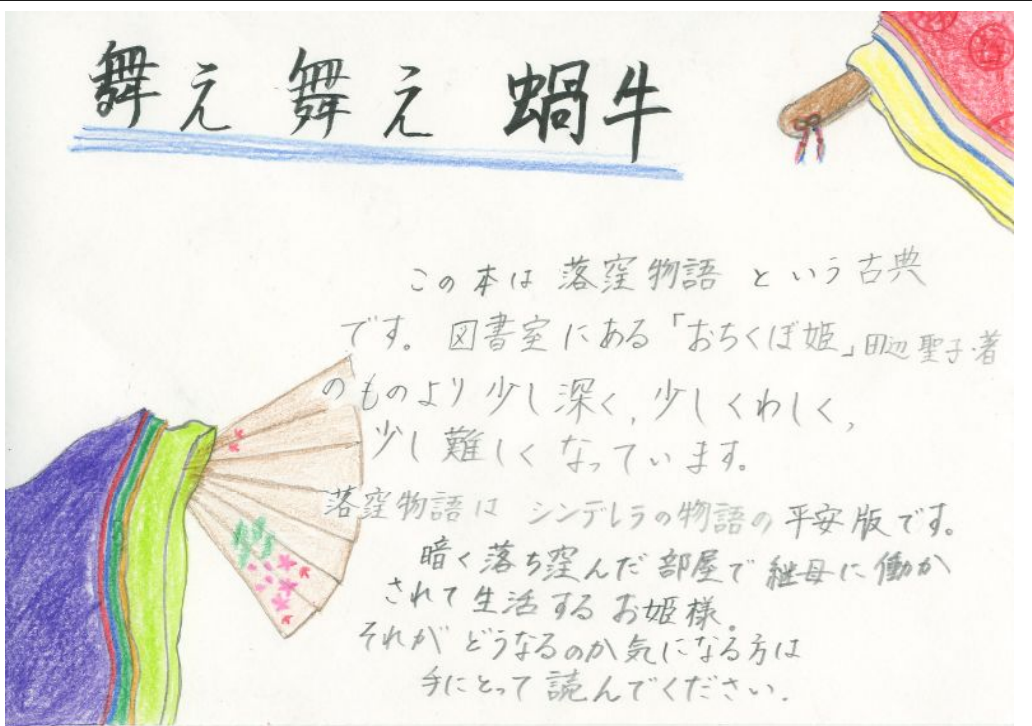 舞え舞え蝸牛
この本は落窪物語という古典
です。図書室にある「おちくぼ姫」田辺聖子・著
のものより少し深く、少しくわしく、
少し難しくなっています。
落窪物語はシンデレラの物語の平安版です。
暗く落ち窪んだ部屋で継母に働か
されて生活するお姫様。
それがどうなるのか気になる方は
手にとって読んでください。